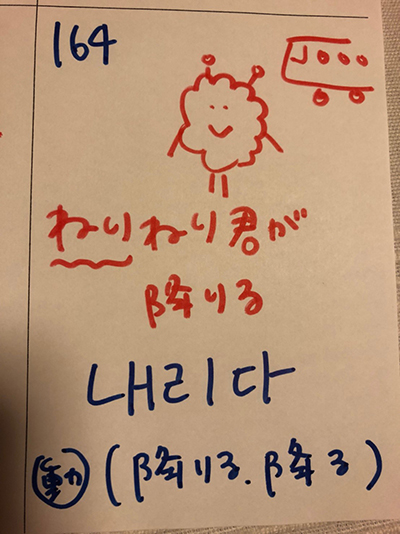 164
ねりねり君が
降りる
내리다
動 (降りる、降る)